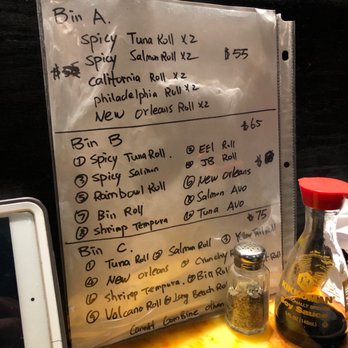 Bin A.
Spicy Tuna Roll x2
Spicy Salmon Roll x2
$55
California Roll x2
philadelphia Roll x2
New Orleans Roll x2
$65
Bin B
① Spicy Tuna Roll. ② EEl Roll
③ Spicy Salmon ④ JB Roll
⑤ Rainbow Roll ⑥ New Orleans
⑦ Bin Roll ⑧ Salmon Avo
⑨ Shrimp Tempura ⑩ Tuna Avo
$75
Bin C.
① Tuna Roll ② Salmon Roll
④ New orleans Crunchy
Shrimp tempura. Big Roll
Volcano Roll Long Beach Roll
Cannot Combine